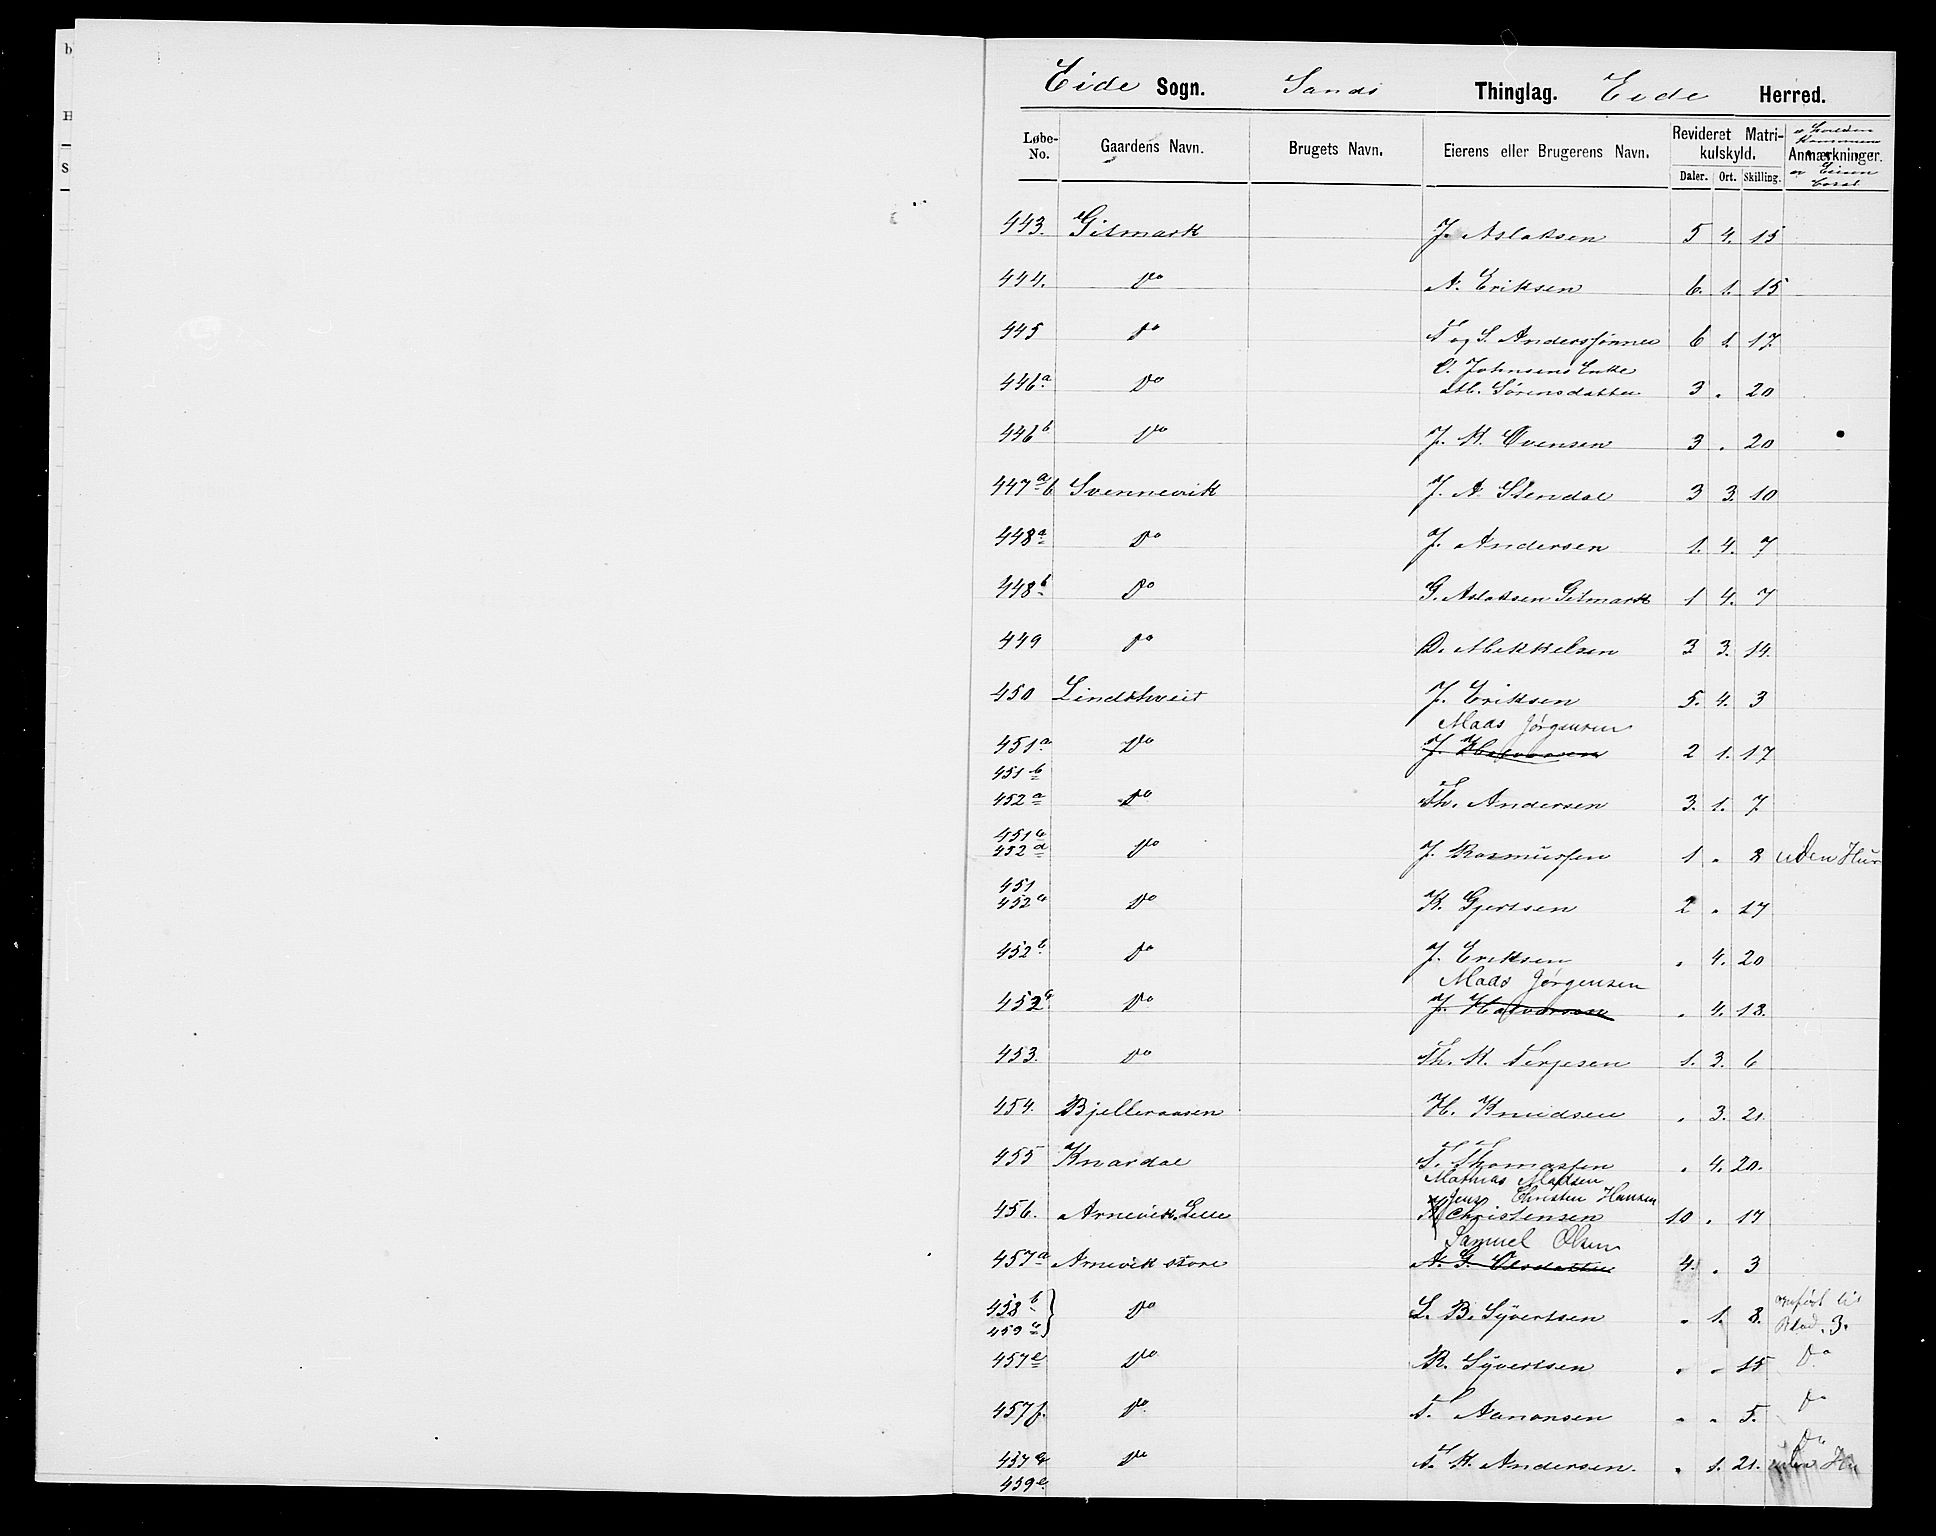 Eide Sogn. Sands Thinglag. Eide Herred.
Løbe-No. Gaardens Navn. Brugets Navn. Eierens eller Brugerens Navn. Revideret Matrikulskyld. Anmærkninger.
Daler. Ort. Skilling.
443. Gitmark J. Aslaksen 5 4. 15
444. Do N. Eriksen 6. 1. 15
445 Do T og S. Anderssønner 6 1. 17.
O. Johnsens Enke
446a Do M. Sørensdatter 3 . 20
446b Do J. K. Ovensen 3 . 20
447a b Svennevik J. A. Stendal 3 3. 10
448a Do J. Andersen 1. 4. 7
448b Do G. Aslaksen Gitmark 1 4. 7
449 Do D. Mikkelsen 3 3. 14.
450 Lindtveit J. Eriksen 5. 4. 3
Mads Jørgensen
451a Do J. Halvorsen 2 1. 17
451b
452a Do Th. Andersen 3. 1. 7.
451c
452d Do J. Rasmussen 1 . 8 uden Hus
451
452c Do K. Gjertsen 2 . 17
452b Do J. Eriksen . 4. 20
Mads Jørgensen
452 Do J. Halvorsen . 4. 18.
453. Do Th. K. Terjesen 1. 3. 6
454. Bjelleraasen H. Knudsen . 3. 21.
455 Knardal T. Thomassen . 4. 20.
Mathias Madsen
Jens Christen Hansen
456. Arnevik, Lille Christensen 10 . 17
Samuel Olsen
457a Arnevik store A. G. Olsdatter 4. . 3
458b Do L. B. Syvertsen . 1. 8. opført til
459a Blad. 3.
457e Do R. Syvertsen . . 15 Do
457f. Do T. Aanonsen . . 5. Do
Do
457 Do T. K. Andersen. . 1. 21. uden Hu
459e